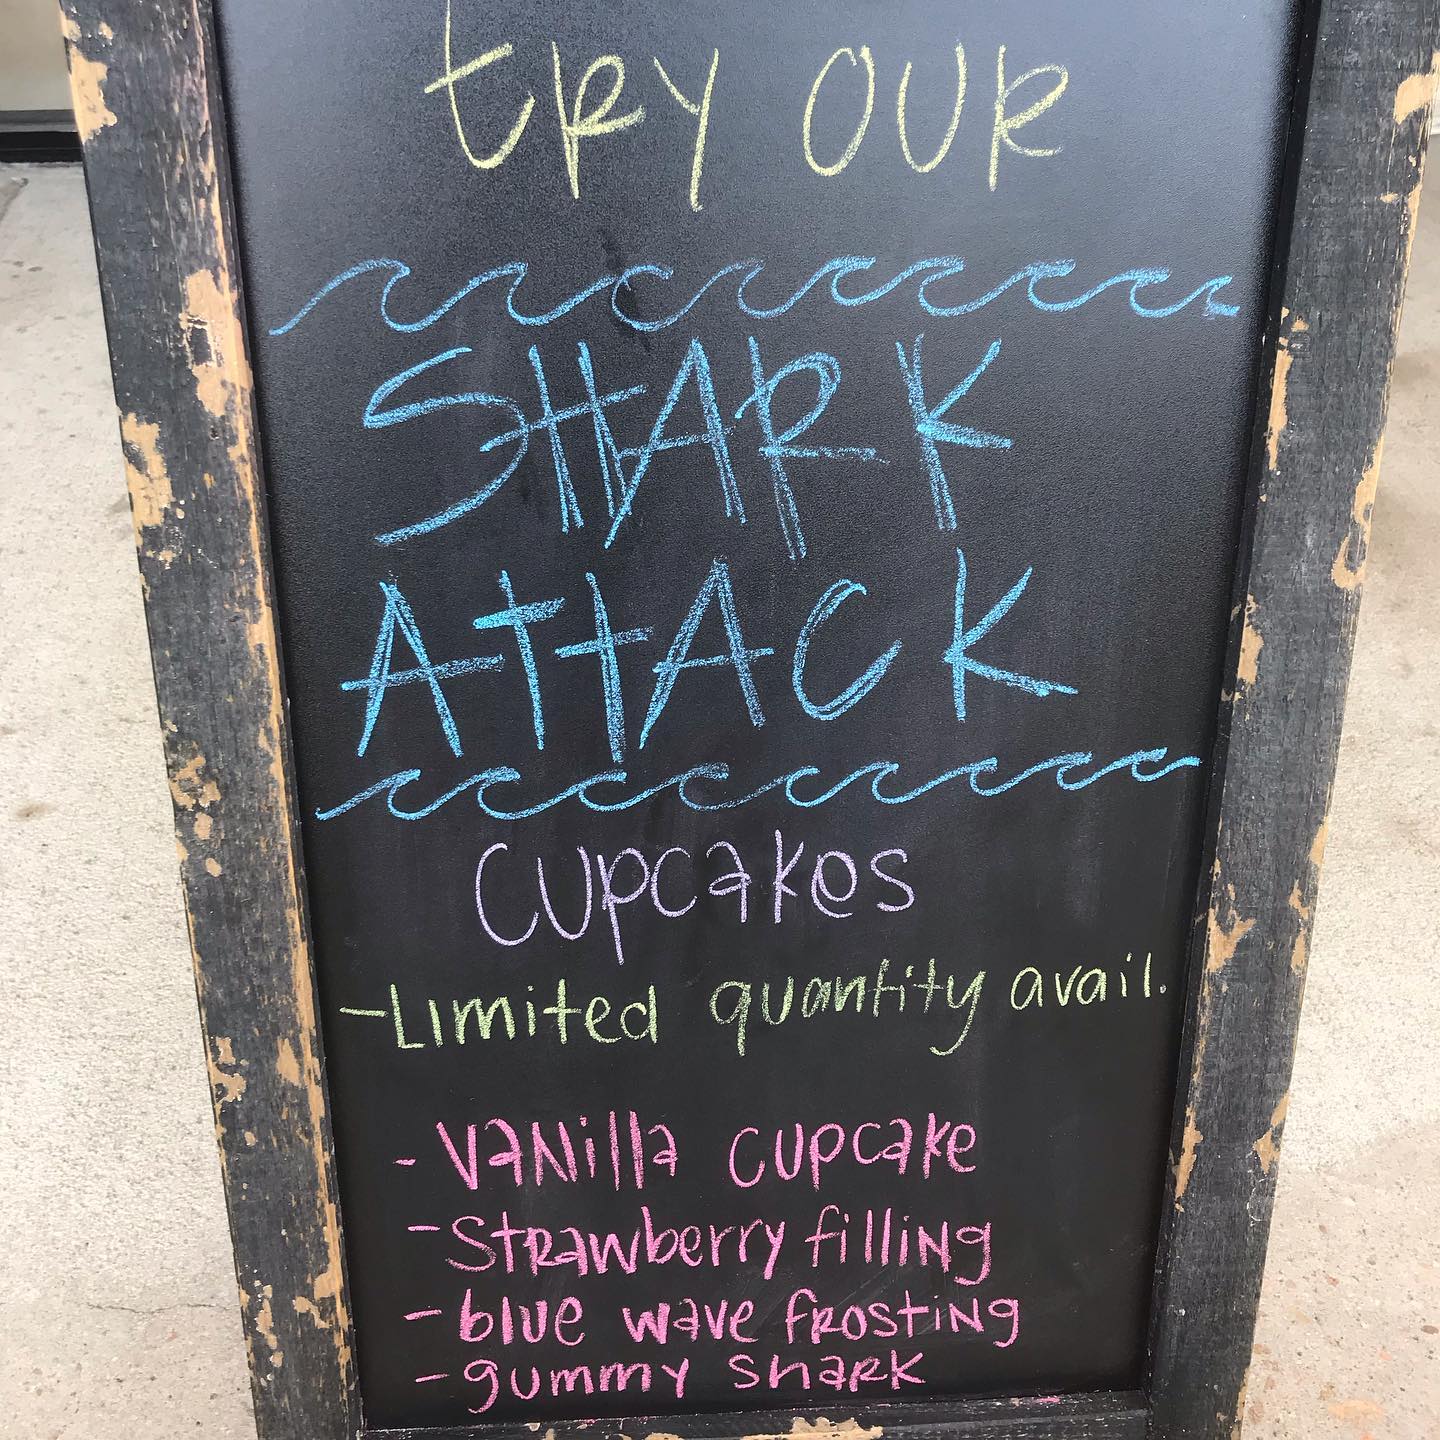 try our
SHARK
ATTACK
cupcakes
-Limited quantity avail.
- Vanilla cupcake
- Strawberry filling
- blue wave frosting
- gummy shark